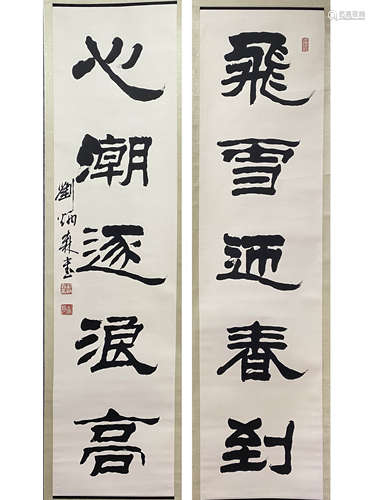 飛雪迎春到
心潮逐浪高
劉炳森書